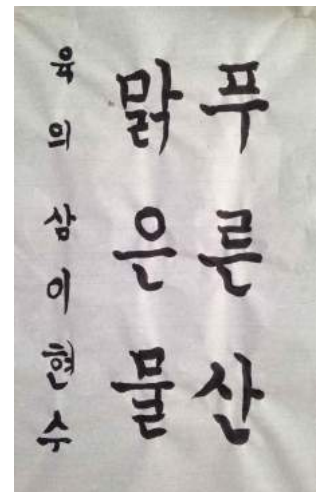 푸른산
맑은물
육의삼이현수